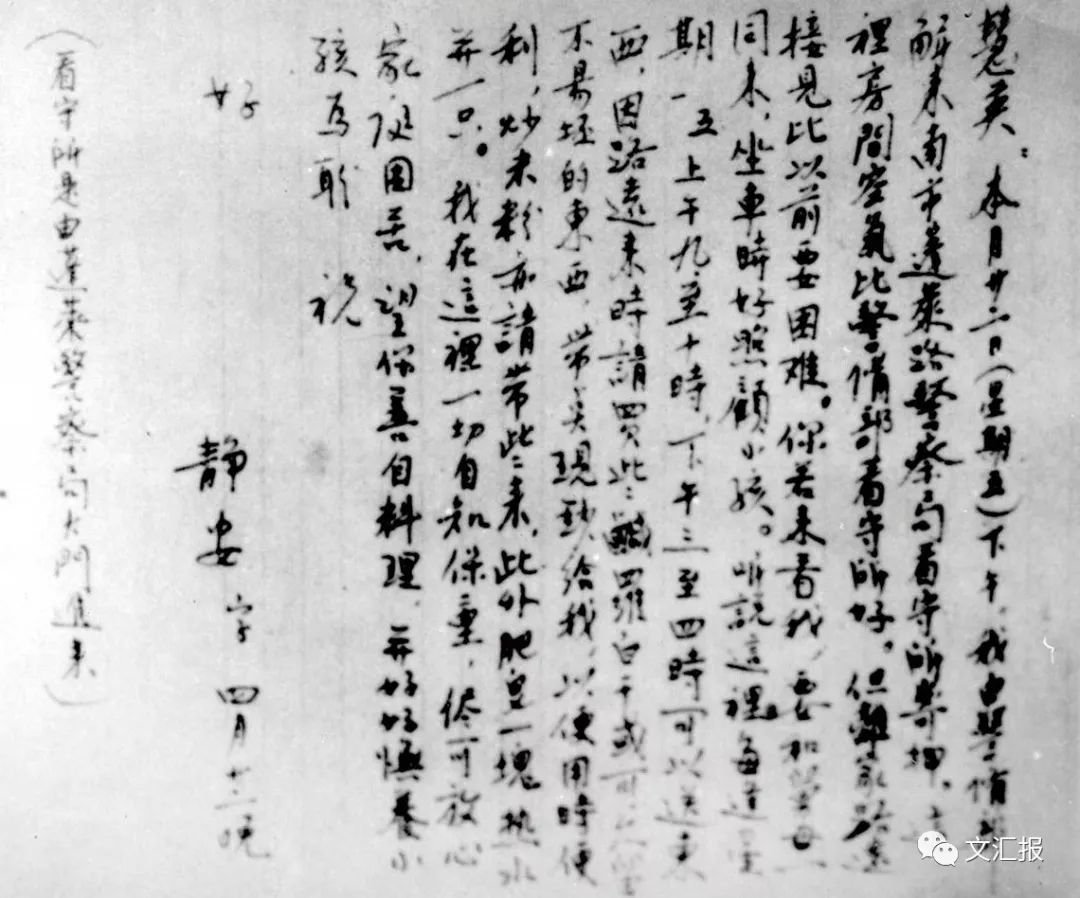 慧英：本月廿二日（星期五）下午，我由警備部
解来南市蓬萊路警察局看守所寄押。這
裡房間空氣比警備部看守所好。但離家路遠
接見比以前要困难。你若来看我，要和舅母
同来，坐車時好照顧小孩。听説這裡每逢星
期一、五上午九至十時，下午三至四時可以送東
西，因路遠来時請買些鹹羅白干或可久留
不易坯的東西，带点現鈔給我，以便用時便
利，炒米粉亦請带些来，此外肥皂一塊 热水
并一只。我在這裡一切自知保重，侭可放心
家庭困苦，望你善自料理，并好好撫養小
孩為盼 祝
好
静安 字 四月廿二晚
（看守所是由蓬萊警察局大門進来）
文汇报